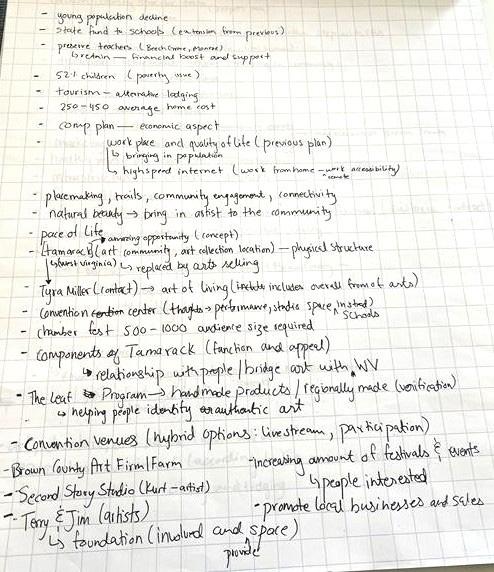 - young population decline
- state fund to schools (extension from previous)
- preserve teachers (Beech Grove, Monroe)
↳ retain — financial boost and support
- 52% children (poverty issue)
- tourism - alternative lodging
- 250-450 average home cost
- comp plan — economic aspect
work place and quality of life (previous plan)
↳ bringing in population
↳ highspeed internet (work from home - work accessibility)
remote
- placemaking, trails, community engagement, connectivity
- natural beauty → bring in artist to the community
- pace of Life
amazing opportunity (concept)
- (tamarack) (art community, art collection location) — physical structure
(west virginia) ↳ replaced by arts selling
Tyra Miller (contact) → art of living (includes overall from of arts)
- convention center (thoughts → performance, studio space, instead)
schools
- chamber fest 500-1000 audience size required
- components of Tamarack (function and appeal)
↳ relationship with people / bridge art with WV
- The Leaf Program → handmade products / regionally made (verification)
↳ helping people identify authentic art
- Convention venues (hybrid options: livestream, participation)
- Brown County Art Firm | Farm
- increasing amount of festivals & events
↳ people interested
- Second Story Studio (Kurt - artist)
- promote local businesses and sales
- Terry & Jim (artists)
↳ foundation (involved and space)
provide